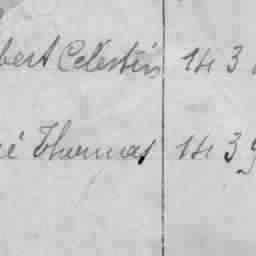 bert Celestin 143
é Thermas 1439